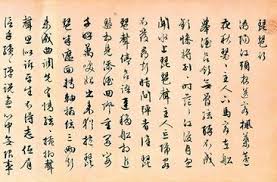 琵琶行
潯陽江頭夜送客楓葉荻
花秋瑟瑟主人下馬客在船
舉酒欲飲無管絃醉不成
慘將別琵琶聲主人忘歸客
不發尋聲暗問彈者誰琵
琶聲停欲語遲移船相近
邀相見添酒回燈重開宴
千呼萬喚始出來猶抱琵
琶半遮面轉軸撥絃三兩聲
未成曲調先有情絃絃掩抑
聲聲思似訴平生不得志低眉
信手續續彈說盡心中無限事